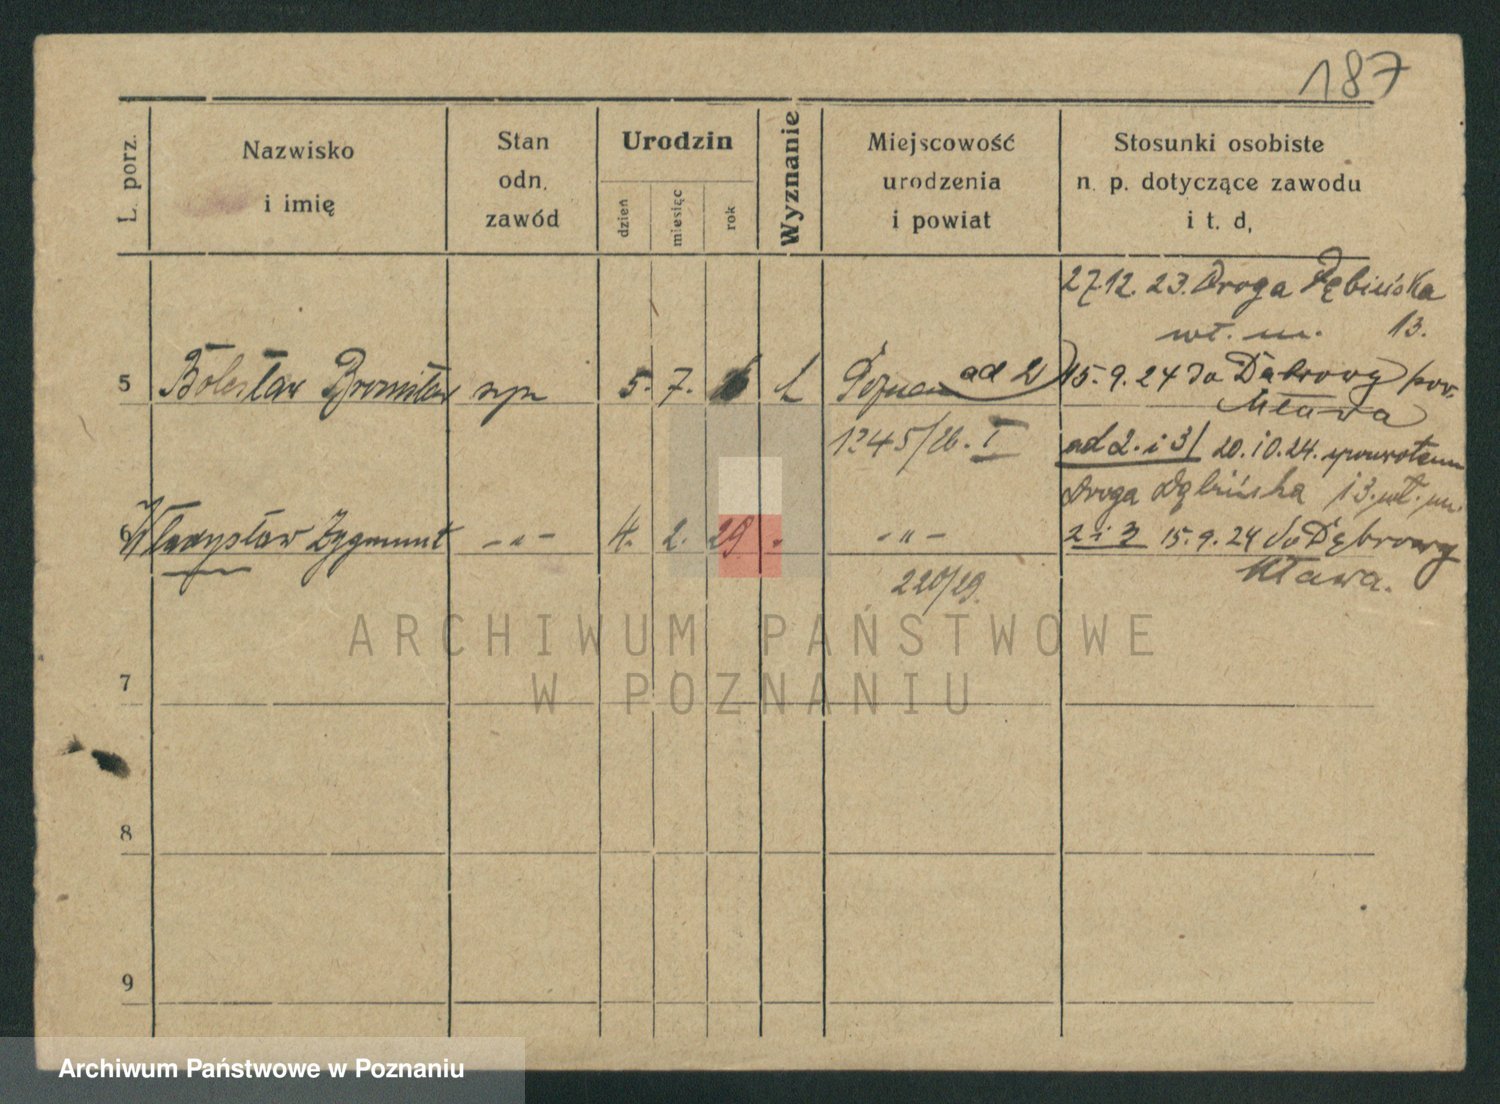 187
L. porz.
Nazwisko
i imię
Stan
odn.
zawód
Urodzin
dzień
miesięc
rok
Wyznanie
Miejscowość
urodzenia
i powiat
Stosunki osobiste
n. p. dotyczące zawodu
i t. d.
27.12. 23. Droga Dębińska
wł. m. 13.
5 Bolesław Bronisław syn 5. 7. 26 k Poznań ad 2) 15.9.24 do Dąbrowy pow.
Mława
1245/26. I ad 2. i 3/ 20.10.24. spowrotem
Droga Dębińska 13. wł. m.
6 Władysław Zygmunt - " - 4. 2. 29 " - " - 2 i 3 15.9.24 do Dąbrowy
Mława.
220/29.
ARCHIWUM PAŃSTWOWE
W POZNANIU
7
8
9
Archiwum Państwowe w Poznaniu